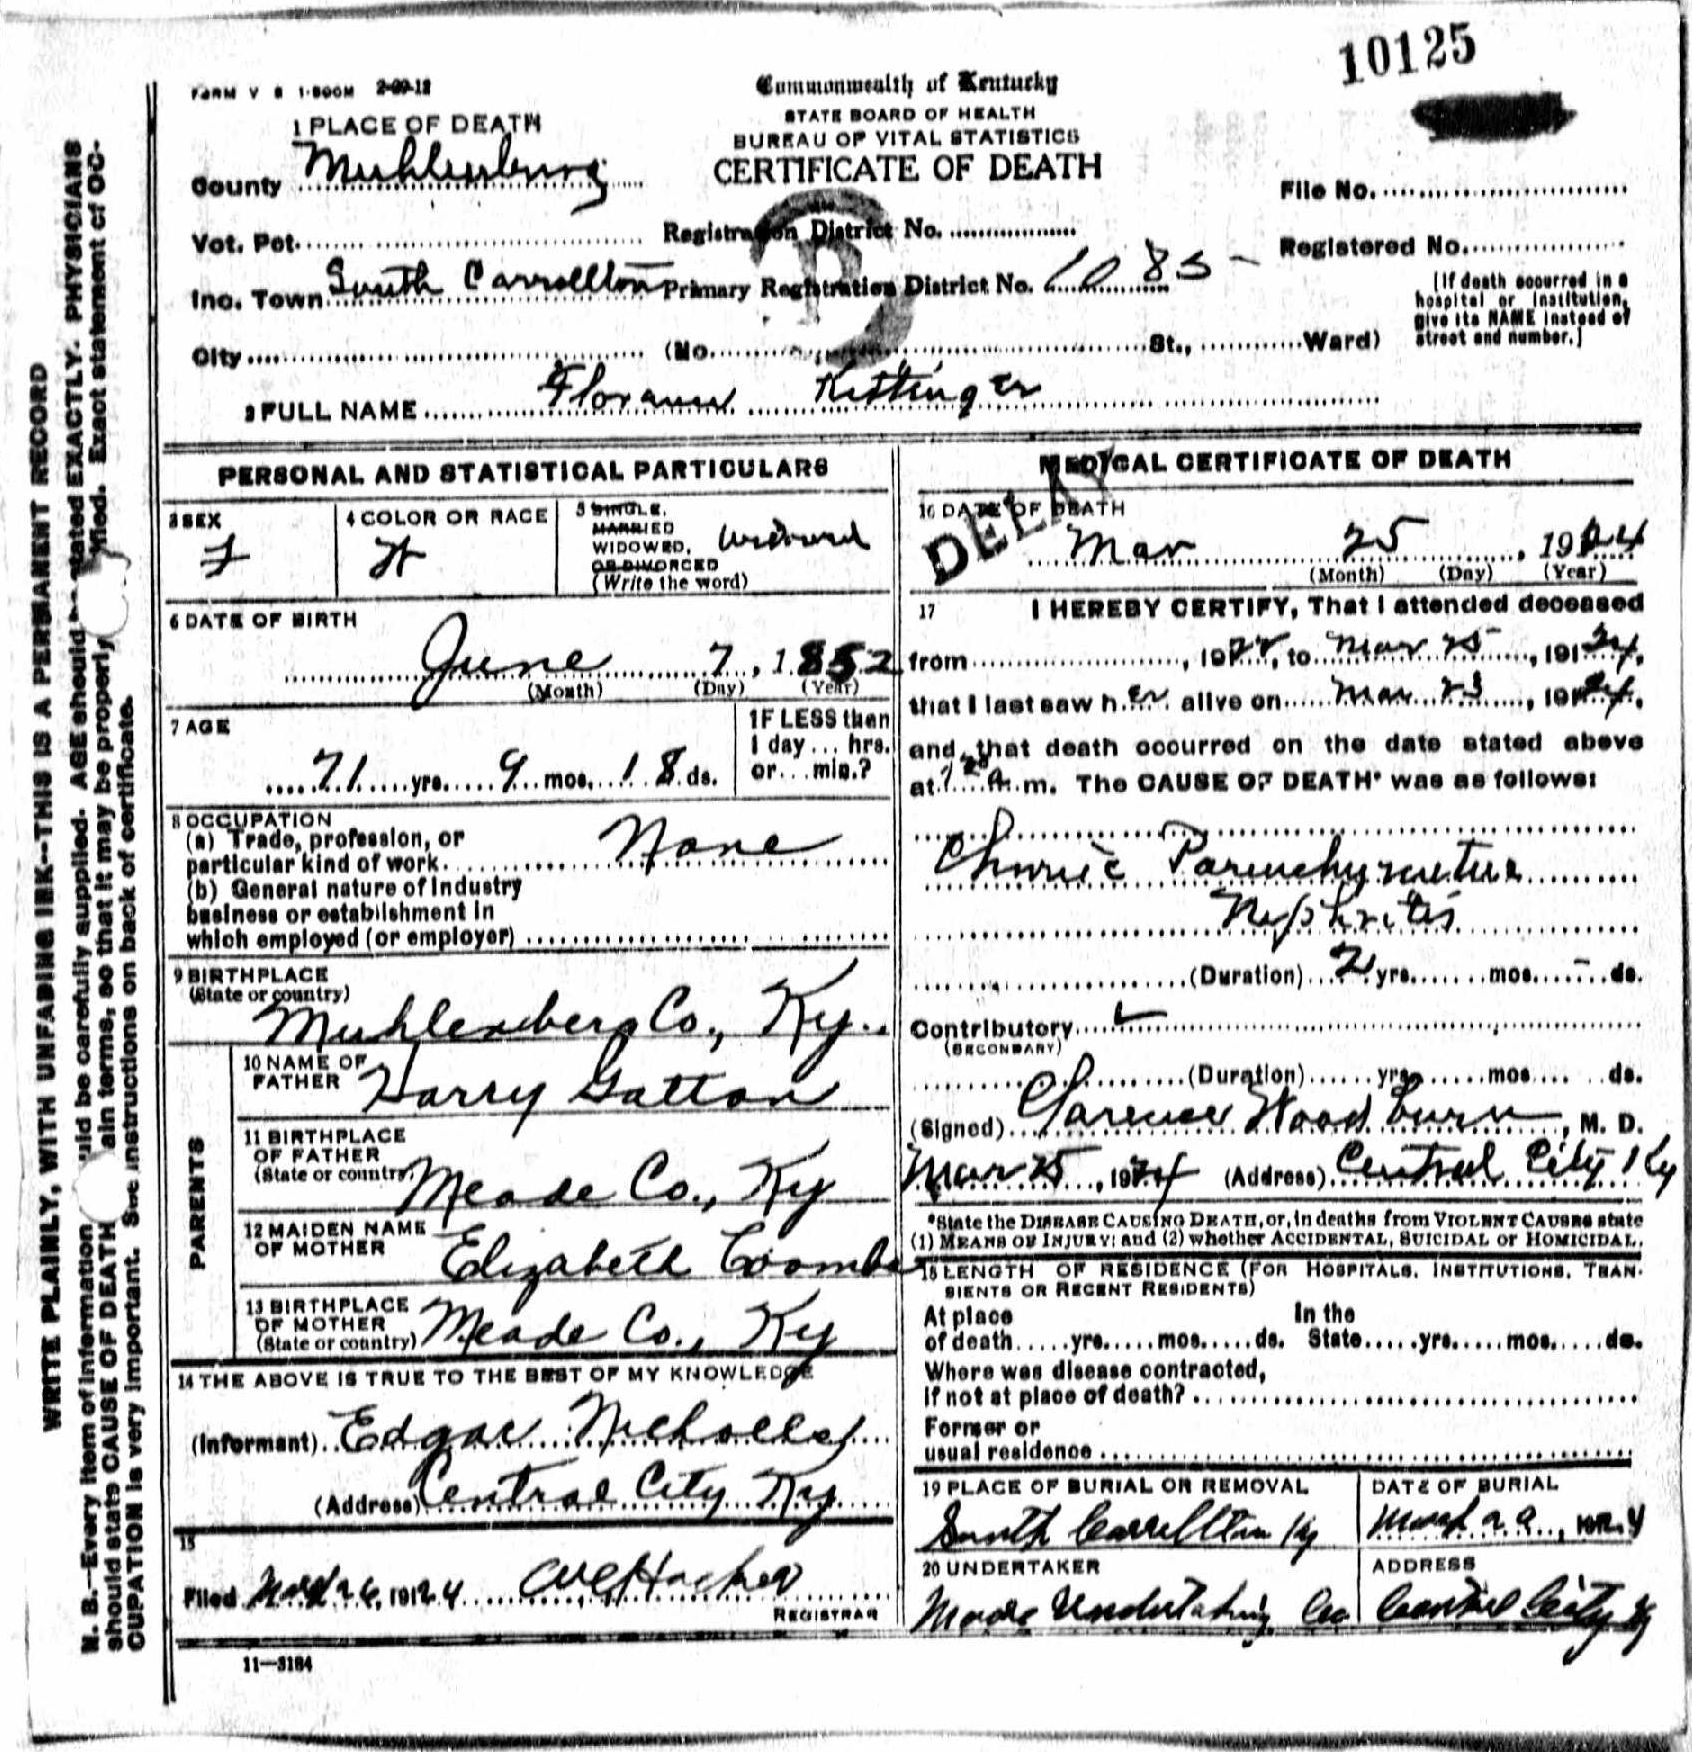 10125
FORM V S 1-500M 2-09-12
Commonwealth of Kentucky
STATE BOARD OF HEALTH
BUREAU OF VITAL STATISTICS
CERTIFICATE OF DEATH
1 PLACE OF DEATH
County Muhlenberg
File No.
Vot. Pct.
Registration District No.
Registered No.
Inc. Town South Carrollton
Primary Registration District No. 1085
[If death occurred in a
hospital or institution,
give its NAME instead of
street and number.]
City (No. St., Ward)
2 FULL NAME Kittinger
PERSONAL AND STATISTICAL PARTICULARS
3 SEX
F
4 COLOR OR RACE
W
5 SINGLE,
MARRIED
WIDOWED,
OR DIVORCED
(Write the word)
Widowed
6 DATE OF BIRTH
June 7, 1852
(Month) (Day) (Year)
7 AGE
71 yrs. 9 mos. 18 ds.
IF LESS than
1 day... hrs.
or... min.?
8 OCCUPATION
(a) Trade, profession, or
particular kind of work None
(b) General nature of industry
business or establishment in
which employed (or employer)
9 BIRTHPLACE
(State or country)
Muhlenberg Co., Ky.
PARENTS
10 NAME OF
FATHER
Harry Gatton
11 BIRTHPLACE
OF FATHER
(State or country)
Meade Co., Ky
12 MAIDEN NAME
OF MOTHER
Elizabeth Coombs
13 BIRTHPLACE
OF MOTHER
(State or country)
Meade Co., Ky
14 THE ABOVE IS TRUE TO THE BEST OF MY KNOWLEDGE
(Informant) Edgar Nicholls
(Address) Central City Ky
15
Filed 26, 1924 Hacker
REGISTRAR
11—3184
MEDICAL CERTIFICATE OF DEATH
DELAY
16 DATE OF DEATH
Mar 25, 1924
(Month) (Day) (Year)
17 I HEREBY CERTIFY, That I attended deceased
from , 1922, to Mar 25, 1924,
that I last saw her alive on Mar 23, 1924,
and that death occurred on the date stated above
at a.m. The CAUSE OF DEATH* was as follows:
Chronic Parenchymatous
Nephritis
(Duration) 2 yrs. mos. - ds.
Contributory
(SECONDARY)
(Duration) yrs mos ds.
(Signed) Clarence Woodburn, M. D.
Mar 25, 1924 (Address) Central City Ky
*State the DISEASE CAUSING DEATH, or, in deaths from VIOLENT CAUSES state
(1) MEANS OF INJURY; and (2) whether ACCIDENTAL, SUICIDAL or HOMICIDAL.
18 LENGTH OF RESIDENCE (FOR HOSPITALS, INSTITUTIONS, TRAN-
SIENTS OR RECENT RESIDENTS)
At place In the
of death yrs. mos. ds. State yrs. mos. ds.
Where was disease contracted,
if not at place of death?
Former or
usual residence
19 PLACE OF BURIAL OR REMOVAL
South Carrollton Ky
DATE OF BURIAL
20 UNDERTAKER
Moore Undertaking Co
ADDRESS
Central City Ky
WRITE PLAINLY, WITH UNFADING INK--THIS IS A PERMANENT RECORD
N. B.—Every item of information uld be carefully supplied. AGE should be stated EXACTLY. PHYSICIANS
should state CAUSE OF DEATH ain terms, so that it may be properly ified. Exact statement of OC-
CUPATION is very important. See instructions on back of certificate.